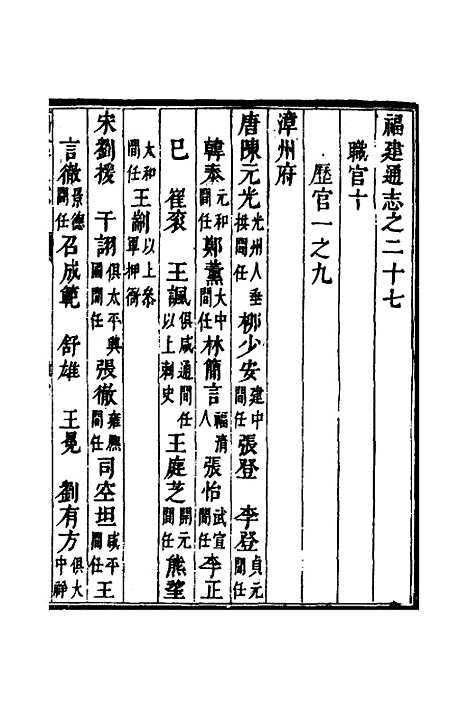 福建通志之二十七
職官十
歷官一之九
漳州府
唐陳元光光州人垂拱間任柳少安建中間任張登 李登貞元間任
韓泰元和間任鄭薰大中間任林簡言福清人張怡武宣間任李正
巳 崔衮 王諷俱咸通間任以上刺史王庭芝開元間任熊望
太和間任王劇以上參軍押衙
宋劉援 干詡俱太平興國間任張徹雍熙間任司空坦咸平間任王
言徹景德間任召成範 舒雄 王冕 劉有方俱大中祥